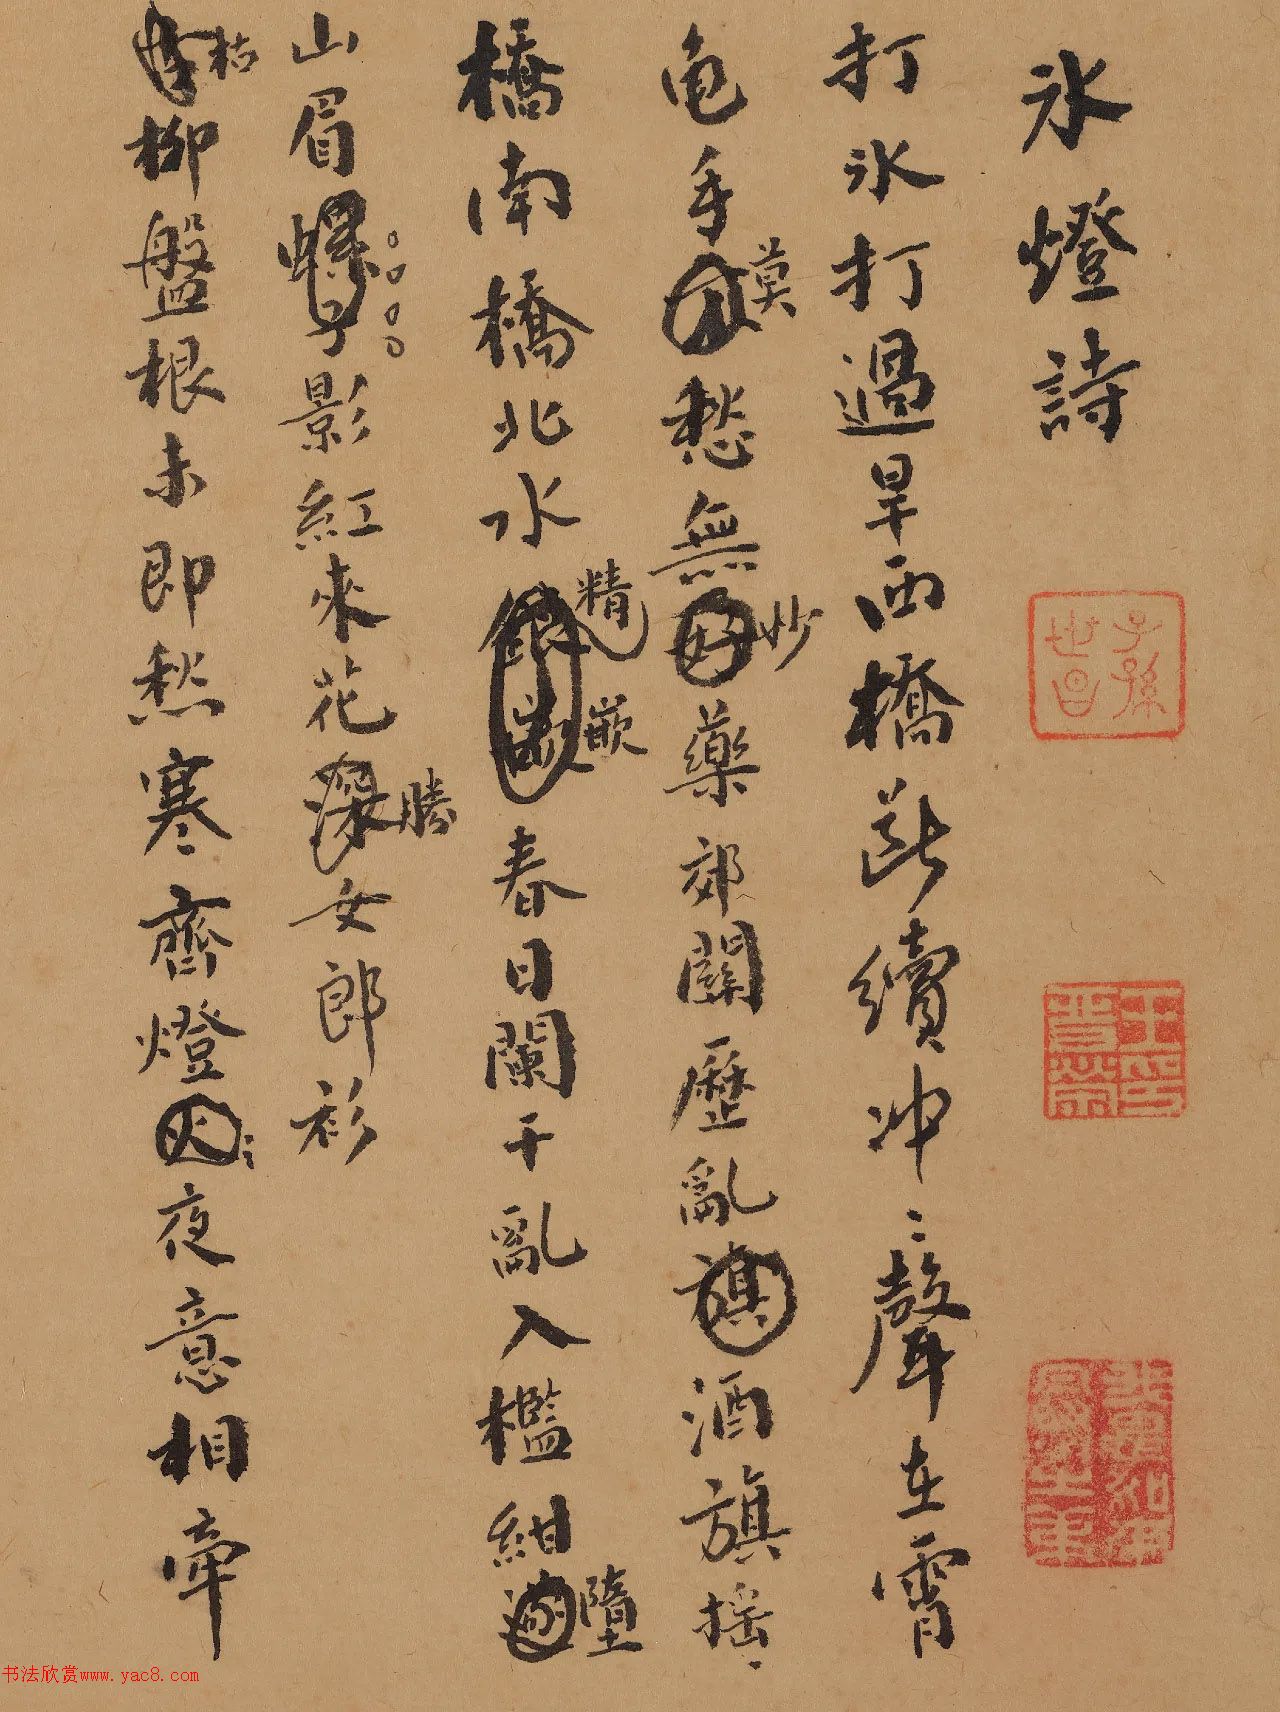 冰燈詩
打冰打過旱西橋斷續冲〻聲在霄
龟手莫愁無妙藥郊關歷亂旗酒旗揺〻
橋南橋北水精嵌春日闌干亂入檻紺墮
山眉螺子影紅來花勝女郎衫
枯柳盤根未即愁寒齊燈火〻夜意相牽
子孫世昌
王晉榮印
书法欣赏www.yac8.com